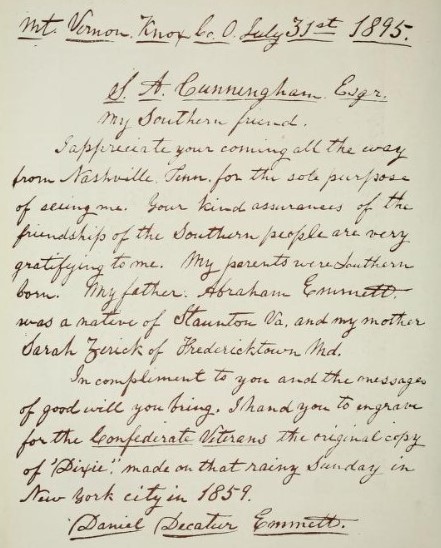 Mt. Vernon. Knox Co. O. July 31st 1895.
S. A. Cunningham. Esqr.
My Southern friend.
I appreciate your coming all the way
from Nashville, Tenn. for the sole purpose
of seeing me. Your kind assurances of the
friendship of the Southern people are very
gratifying to me. My parents were Southern
born. My father. Abraham Emmett.
was a native of Staunton Va. and my mother
Sarah Zerick of Fredericktown Md.
In compliment to you and the messages
of good will you bring. I hand you to engrave
for the Confederate Veterans the original copy
of "Dixie," made on that rainy Sunday in
New York city in 1859.
Daniel Decatur Emmett.